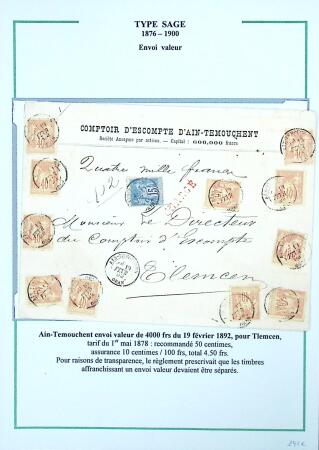 TYPE SAGE
1876 – 1900
Envoi valeur
COMPTOIR D'ESCOMPTE D'AIN-TEMOUCHENT
Société Anonyme par actions. — Capital : 600,000 francs
Quatre mille francs
Monsieur le Directeur
du Comptoir d'Escompte
Tlemcen
Ain-Temouchent envoi valeur de 4000 frs du 19 février 1892, pour Tlemcen,
tarif du 1er mai 1878 : recommandé 50 centimes,
assurance 10 centimes / 100 frs, total 4.50 frs.
Pour raisons de transparence, le règlement prescrivait que les timbres
affranchissant un envoi valeur devaient être séparés.